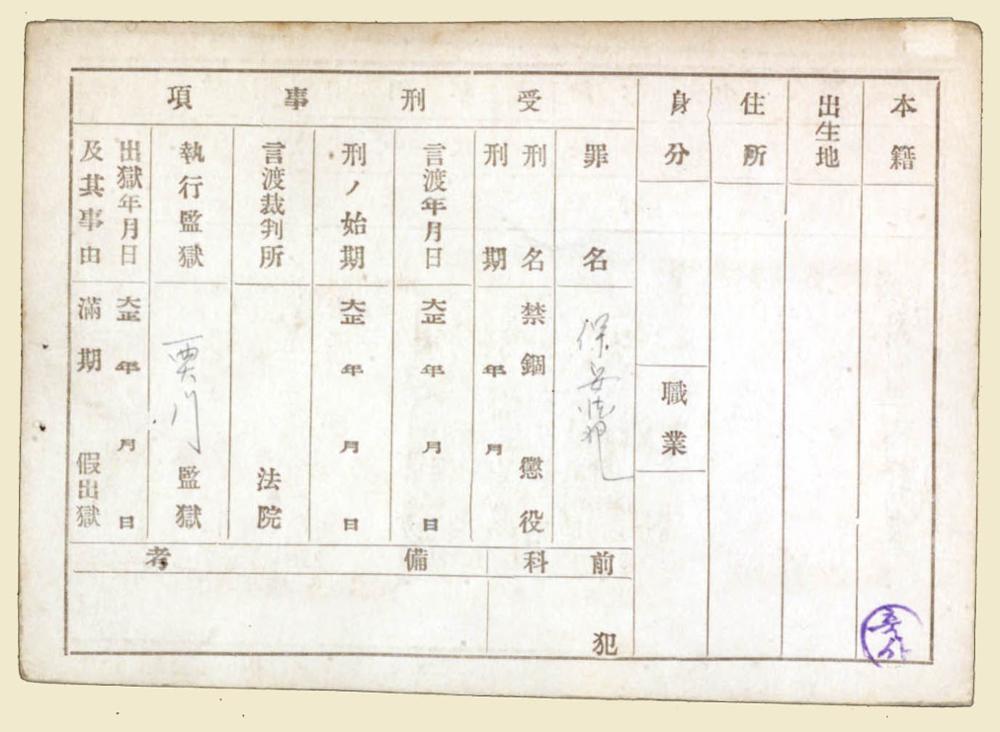 本籍
出生地
住所
身分
職業
受刑事項
罪名
保安法
刑名
禁錮 懲役
刑期
年 月
言渡年月日
大正 年 月 日
刑ノ始期
大正 年 月 日
言渡裁判所
法院
執行監獄
西大門監獄
出獄年月日
及其事由
大正 年 月 日
滿期 假出獄
前科
犯
備考